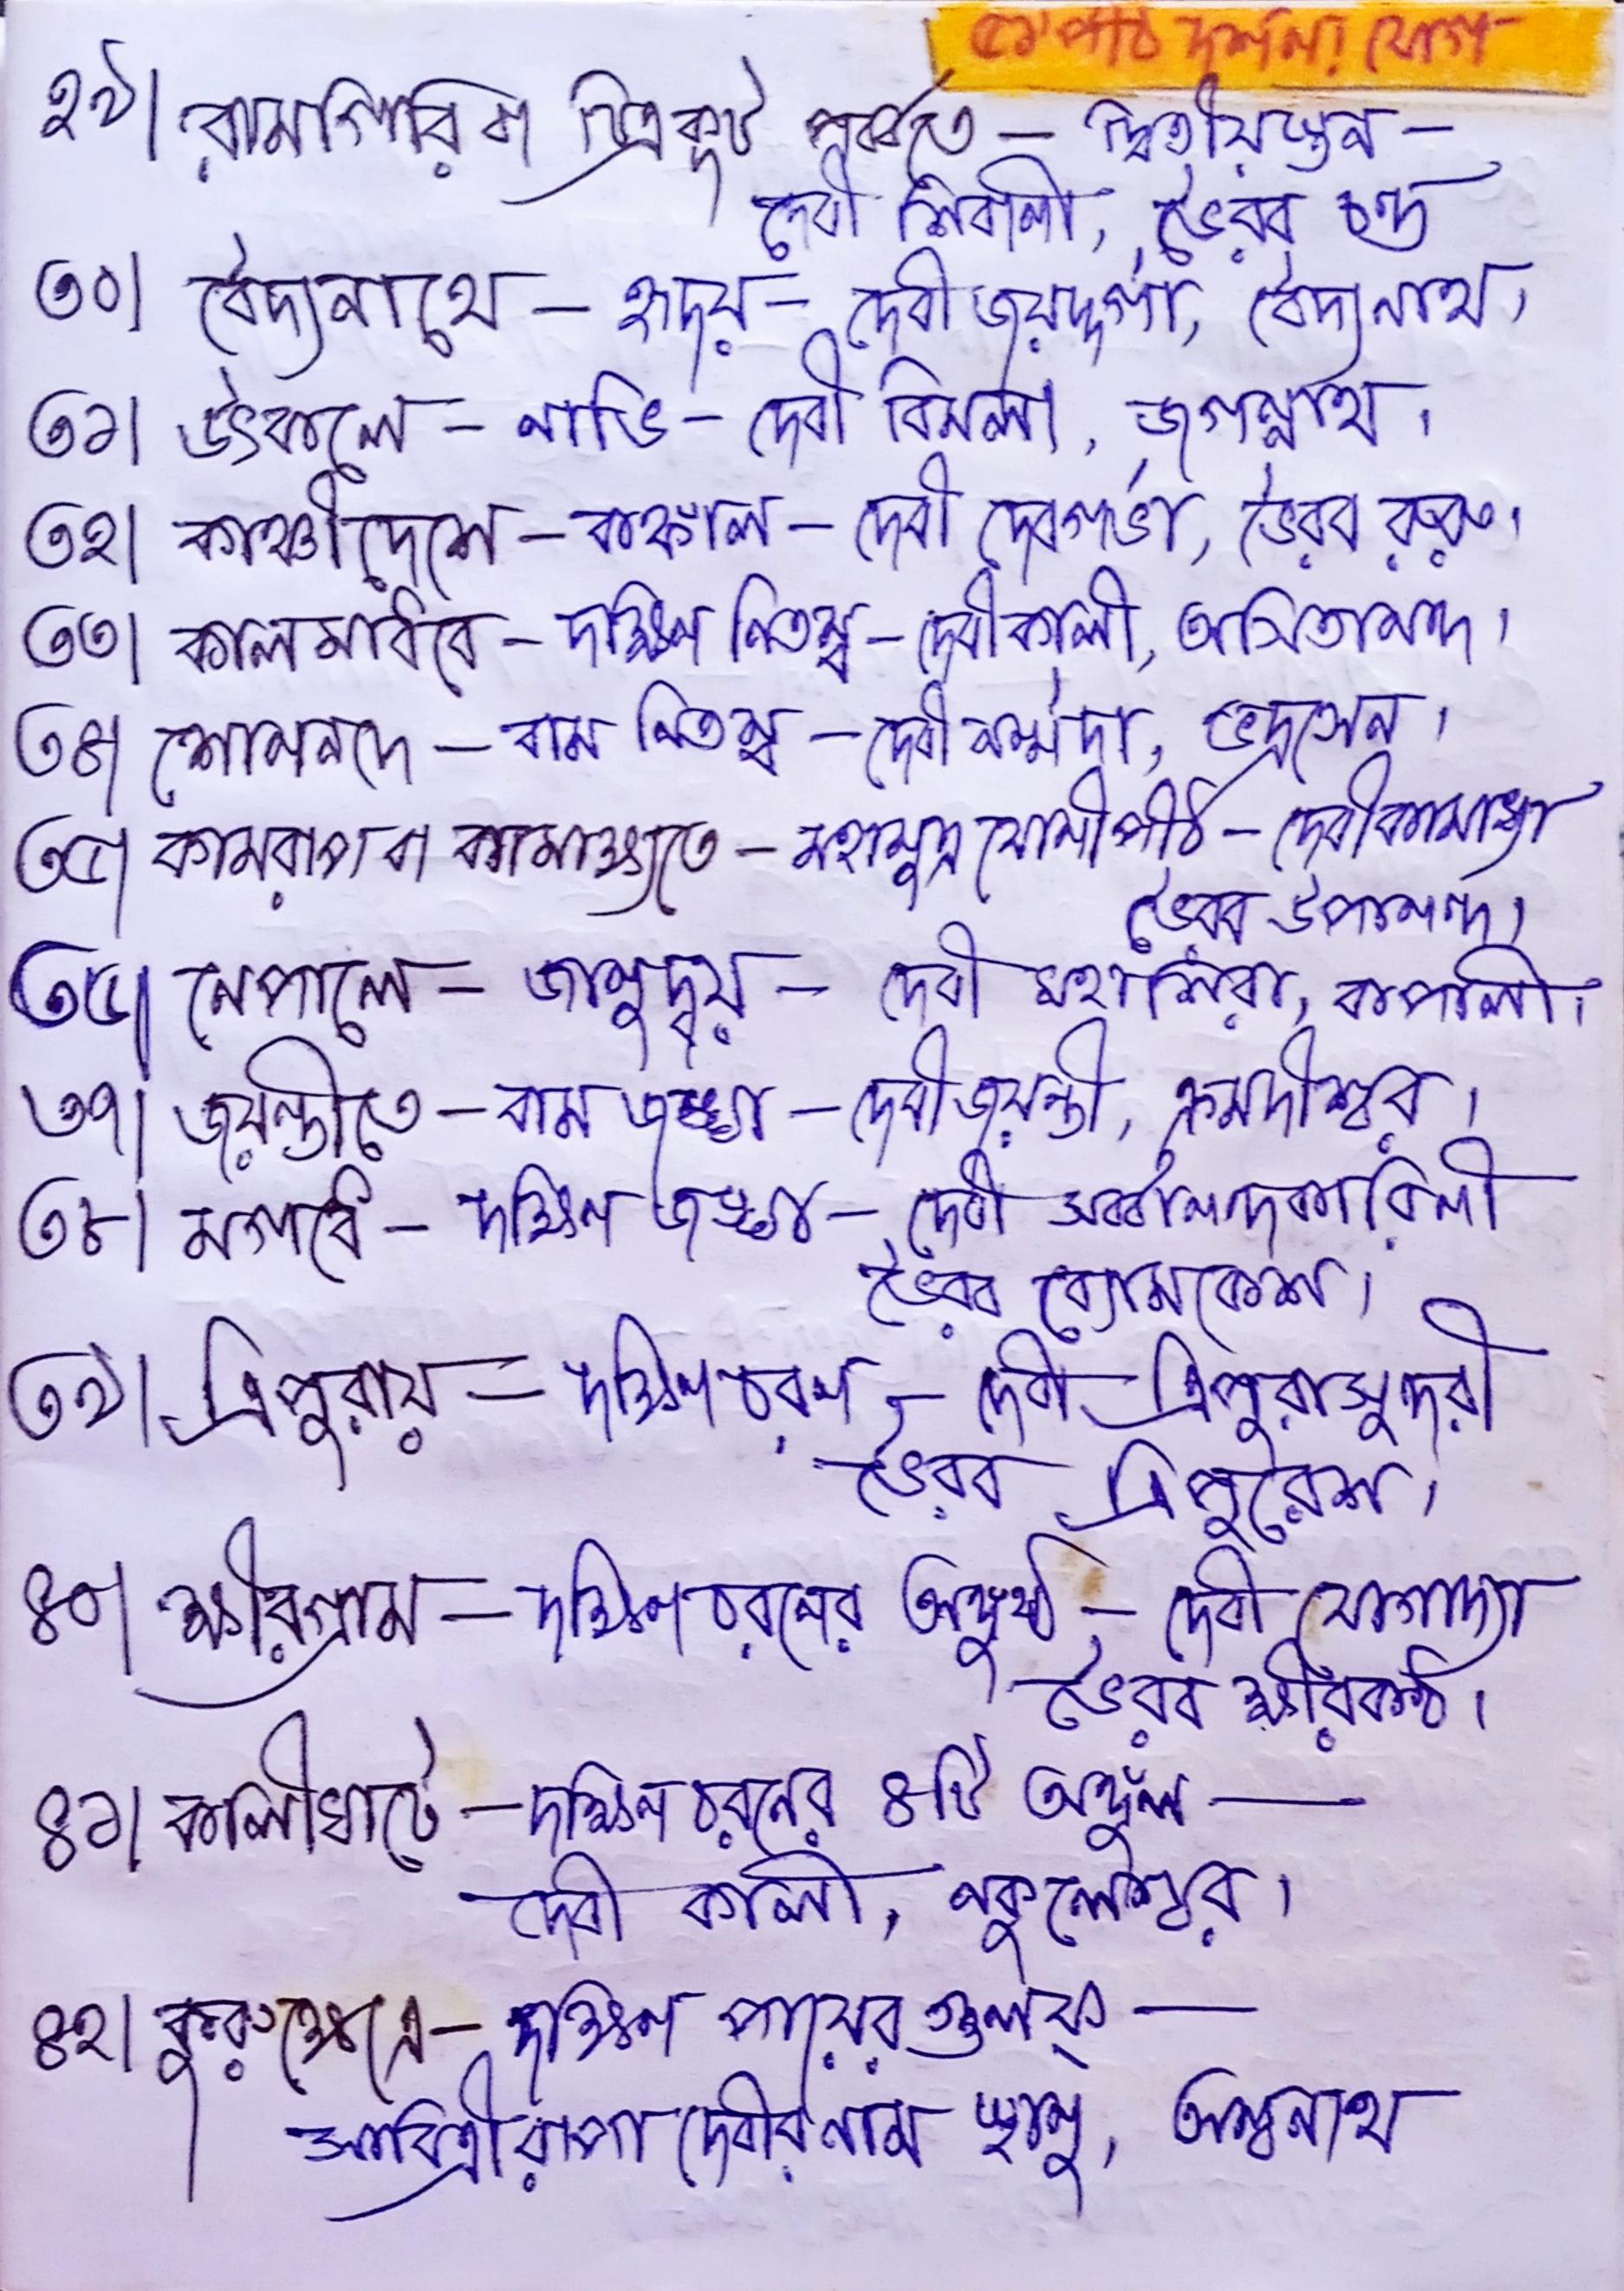 ৫১ পীঠ দর্শনা যোগ
২৯। রামগিরি বা চিত্রকূট পর্ব্বতে – দ্বিতীয় স্তন –
দেবী শিবানী, ভৈরব চন্ড
৩০। বৈদ্যনাথে – হৃদয় – দেবী জয়দুর্গা, বৈদ্যনাথ।
৩১। উৎকলে – নাভি – দেবী বিমলা, জগন্নাথ।
৩২। কাঞ্চীদেশে – কঙ্কাল – দেবী দেবগর্ভা, ভৈরব রুরু।
৩৩। কালমাধবে – দক্ষিন নিতম্ব – দেবী কালী, অসিতানন্দ।
৩৪। শোননদে – বাম নিতম্ব – দেবী নর্ম্মদা, ভদ্রসেন।
৩৫। কামরূপ বা কামাক্ষ্যাতে – মহামুদ্রা যোনীপীঠ – দেবী কামাখ্যা
ভৈরব উপানন্দ।
৩৬। নেপালে – জানুদ্বয় – দেবী মহাশিরা, কাপালী।
৩৭। জয়ন্তীতে – বাম জঙ্ঘা – দেবী জয়ন্তী, ক্রমদীশ্বর।
৩৮। মগধে – দক্ষিন জঙ্ঘা – দেবী সর্ব্বানন্দকারিনী
ভৈরব ব্যোমকেশ।
৩৯। ত্রিপুরায় – দক্ষিণ চরণ – দেবী ত্রিপুরাসুন্দরী
ভৈরব ত্রিপুরেশ।
৪০। ক্ষীরগ্রাম – দক্ষিণ চরনের অঙ্গুষ্ঠ – দেবী যোগাদ্যা
ভৈরব ক্ষীরকণ্ঠ।
৪১। কালীঘাটে – দক্ষিন চরনের ৪টি অঙ্গুল —
দেবী কালী, নকুলেশ্বর।
৪২। কুরুক্ষেত্রে – দক্ষিণ পায়ের গুলফ্ —
সাবিত্রীরূপা দেবীর নাম স্থানু, অশ্বনাথ